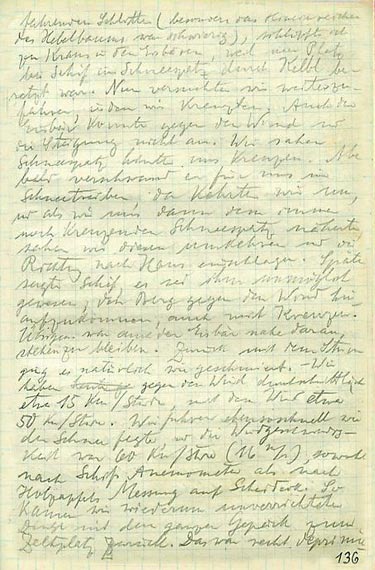 fahrenden Schlitten (besonders das
des Hebelbaums war schwierig), schlüpfte ich
zu Kraus in den Eisbären, weil mein Platz
bei Schif im Schneespatz durch Kelbl be-
setzt war. Nun versuchten wir weiterzu-
fahren, indem wir kreuzten. Auch der
Eisbär konnte gegen den Wind und
die Steigung nicht an. Wir sahen
Schneespatz hinter uns kreuzen. Aber
bald verschwand er für uns im
Schneetreiben, da kehrten wir um,
und als wir uns dann dem immer
noch kreuzenden Schneespatz näherten
sahen wir diesen umkehren und die
Richtung nach Haus einschlagen. Später
sagte Schif, es sei ihm unmöglich
gewesen, den Berg gegen den Wind hin-
aufzukommen, auch mit Kreuzen.
Übrigens war auch der Eisbär nahe daran,
stehen zu bleiben. Zurück mit dem Sturm
ging es natürlich wie geschmiert. – Wir
haben gegen den Wind durchschnittlich
etwa 15 Km/Stunde und mit dem Wind etwa
50 Km/Stde. Wir fuhren ebensoschnell wie
der Schnee fegte, und die Windgeschwindig-
keit war 60 Km/Stde (16 m/s) sowohl
nach Schifs Anemometer als nach
Holzapfels Messung auf Scheideck. So
kamen wir wiederum unverrichteter
Dinge mit dem ganzen Gepäck zum
Zeltplatz zurück. Das war recht deprimie-
136